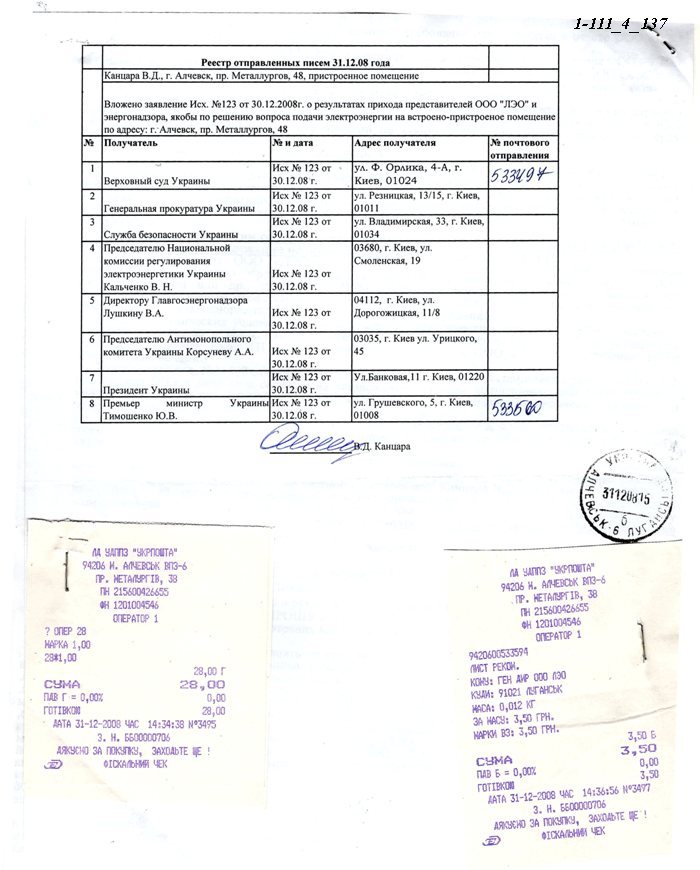 1-111_4_137
Реестр отправленных писем 31.12.08 года
Канцара В.Д., г. Алчевск, пр. Металлургов, 48, пристроенное помещение
Вложено заявление Исх. №123 от 30.12.2008г. о результатах прихода представителей ООО "ЛЭО" и
энергонадзора, якобы по решению вопроса подачи электроэнергии на встроено-пристроеное помещение
по адресу: г. Алчевск, пр. Металлургов, 48
№ Получатель № и дата Адрес получателя № почтового
отправления
1 Исх № 123 от ул. Ф. Орлика, 4-А, г.
Верховный суд Украины 30.12.08 г. Киев, 01024
2 Исх № 123 от ул. Резницкая, 13/15, г. Киев,
Генеральная прокуратура Украины 30.12.08 г. 01011
3 Исх № 123 от ул. Владимирская, 33, г. Киев,
Служба безопасности Украины 30.12.08 г. 01034
4 Председателю Национальной 03680, г. Киев, ул.
комиссии регулирования Смоленская, 19
электроэнергетики Украины Исх № 123 от
Кальченко В. Н. 30.12.08 г.
5 Директору Главгосэнергонадзора 04112, г. Киев, ул.
Лушкину В.А. Исх № 123 от Дорогожицкая, 11/8
30.12.08 г.
6 Председателю Антимонопольного 03035, г. Киев ул. Урицкого,
комитета Украины Корсуневу А.А. Исх № 123 от 45
30.12.08 г.
7 Исх № 123 от Ул.Банковая,11 г. Киев, 01220
Президент Украины 30.12.08 г.
8 Премьер министр Украины Исх № 123 от ул. Грушевского, 5, г. Киев, 533600
Тимошенко Ю.В. 30.12.08 г. 01008
В.Д. Канцара
АЛЧЕВСЬК-6
311208 15
б
ЛА УДППЗ "УКРПОШТА"
94206 М. АЛЧЕВСЬК ВПЗ-6
ПР. МЕТАЛУРГІВ, 38
ПН 215600426655
ФН 1201004546
ОПЕРАТОР 1
? ОПЕР 28
МАРКА 1,00
28*1,00
28,00 Г
СУМА 28,00
ПДВ Г = 0,00% 0,00
ГОТІВКОЮ 28,00
ДАТА 31-12-2008 ЧАС 14:34:38 №3495
З. Н. ББ00000706
ДЯКУЄМО ЗА ПОКУПКУ, ЗАХОДЬТЕ ЩЕ !
ФІСКАЛЬНИЙ ЧЕК
ЛА УДППЗ "УКРПОШТА"
94206 М. АЛЧЕВСЬК ВПЗ-6
ПР. МЕТАЛУРГІВ, 38
ПН 215600426655
ФН 1201004546
ОПЕРАТОР 1
9420600533594
ЛИСТ РЕКОМ.
КОМУ: ГЕН ДИР ООО ЛЭО
КУДИ: 91021 ЛУГАНСЬК
МАСА: 0,012 КГ
ЗА МАСУ: 3,50 ГРН.
МАРКИ ВЗ: 3,50 ГРН.
3,50 Б
СУМА 3,50
ПДВ Б = 0,00% 0,00
ГОТІВКОЮ 3,50
ДАТА 31-12-2008 ЧАС 14:36:56 №3497
З. Н. ББ00000706
ДЯКУЄМО ЗА ПОКУПКУ, ЗАХОДЬТЕ ЩЕ !
ФІСКАЛЬНИЙ ЧЕК